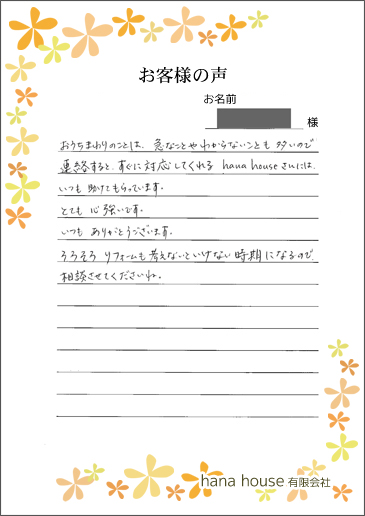 お客様の声
お名前
様
おうちまわりのことは、急なことやわからないことも多いので
連絡すると、すぐに対応してくれる hana houseさんには、
いつも助けてもらっています。
とても心強いです。
いつもありがとうございます。
そろそろリフォームも考えないといけない時期になるので、
相談させてくださいね。
hana house 有限会社